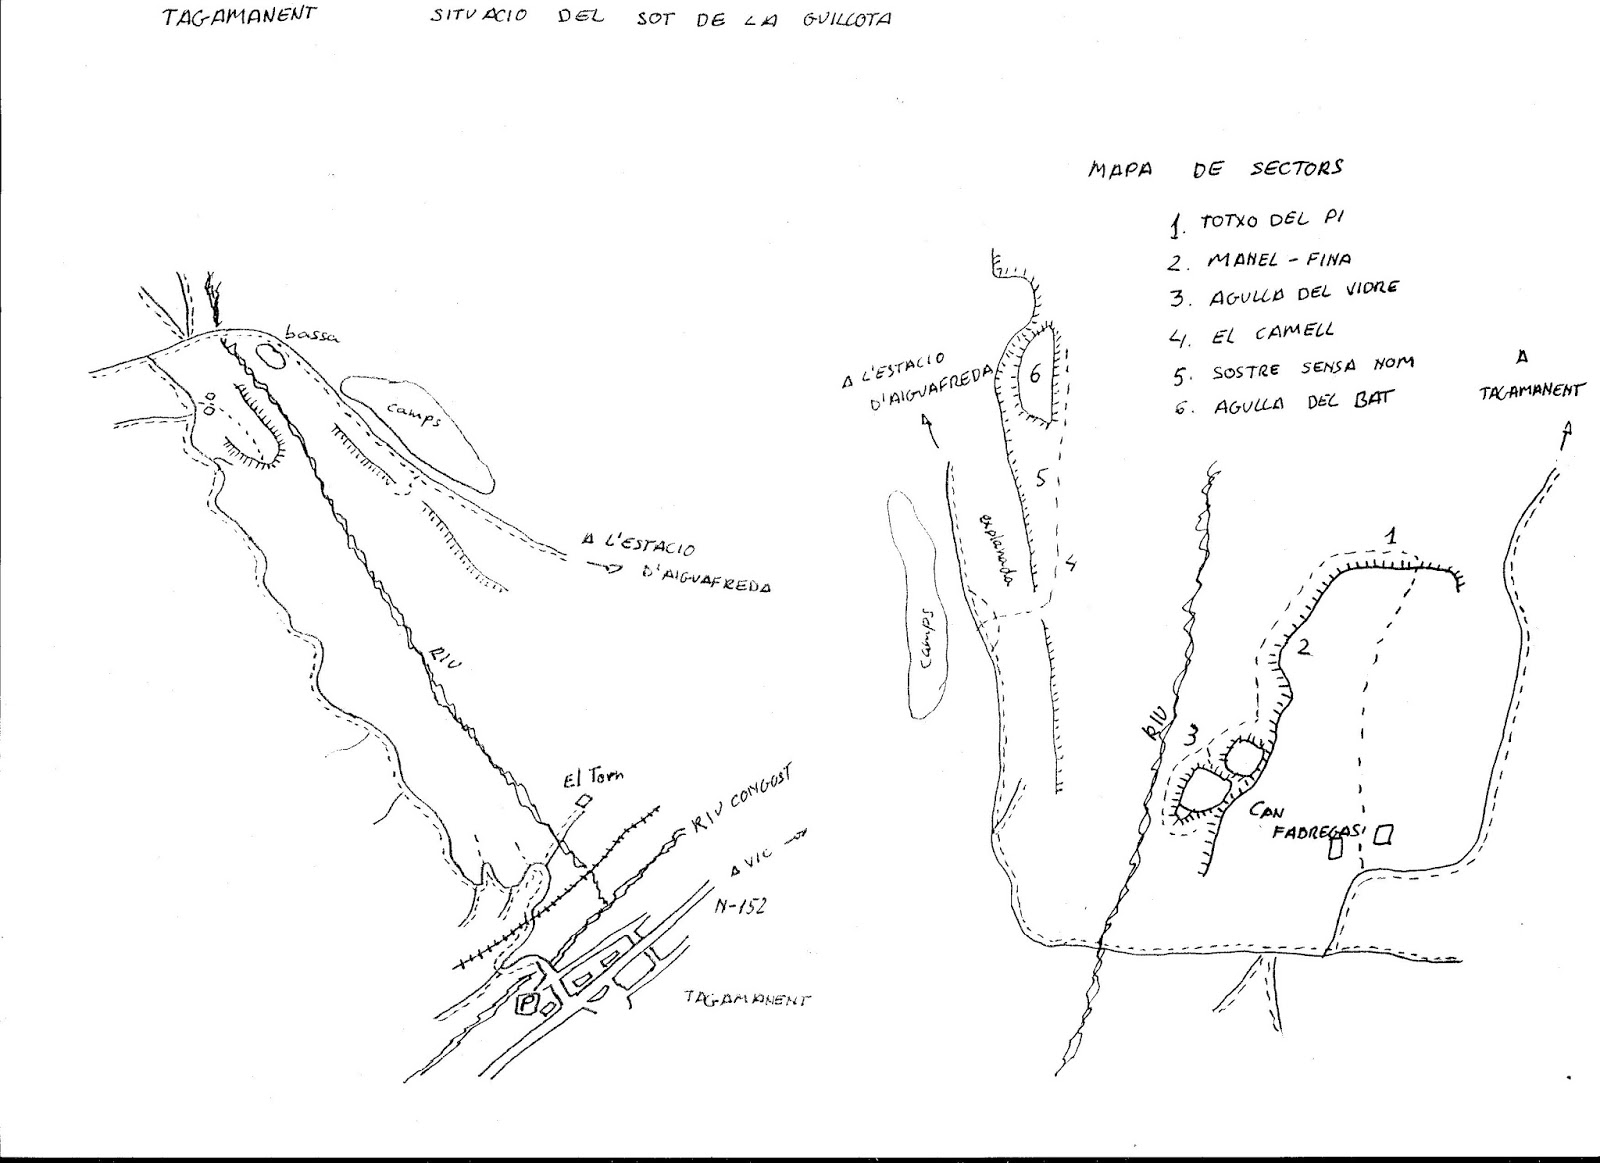 TAGAMANENT SITUACIO DEL SOT DE LA GUILLOTA
bassa
camps
A L'ESTACIO
D'AIGUAFREDA
RIU
El Torn
RIU CONGOST
A VIC
N-152
P
TAGAMANENT
MAPA DE SECTORS
1. TOTXO DEL PI
2. MANEL - FINA
3. AGULLA DEL VIDRE
4. EL CAMELL
5. SOSTRE SENSA NOM
6. AGULLA DEL BAT
A L'ESTACIO
D'AIGUAFREDA
A
TAGAMANENT
6
5
explanada
4
camps
1
2
RIU
3
CAN
FABREGAS